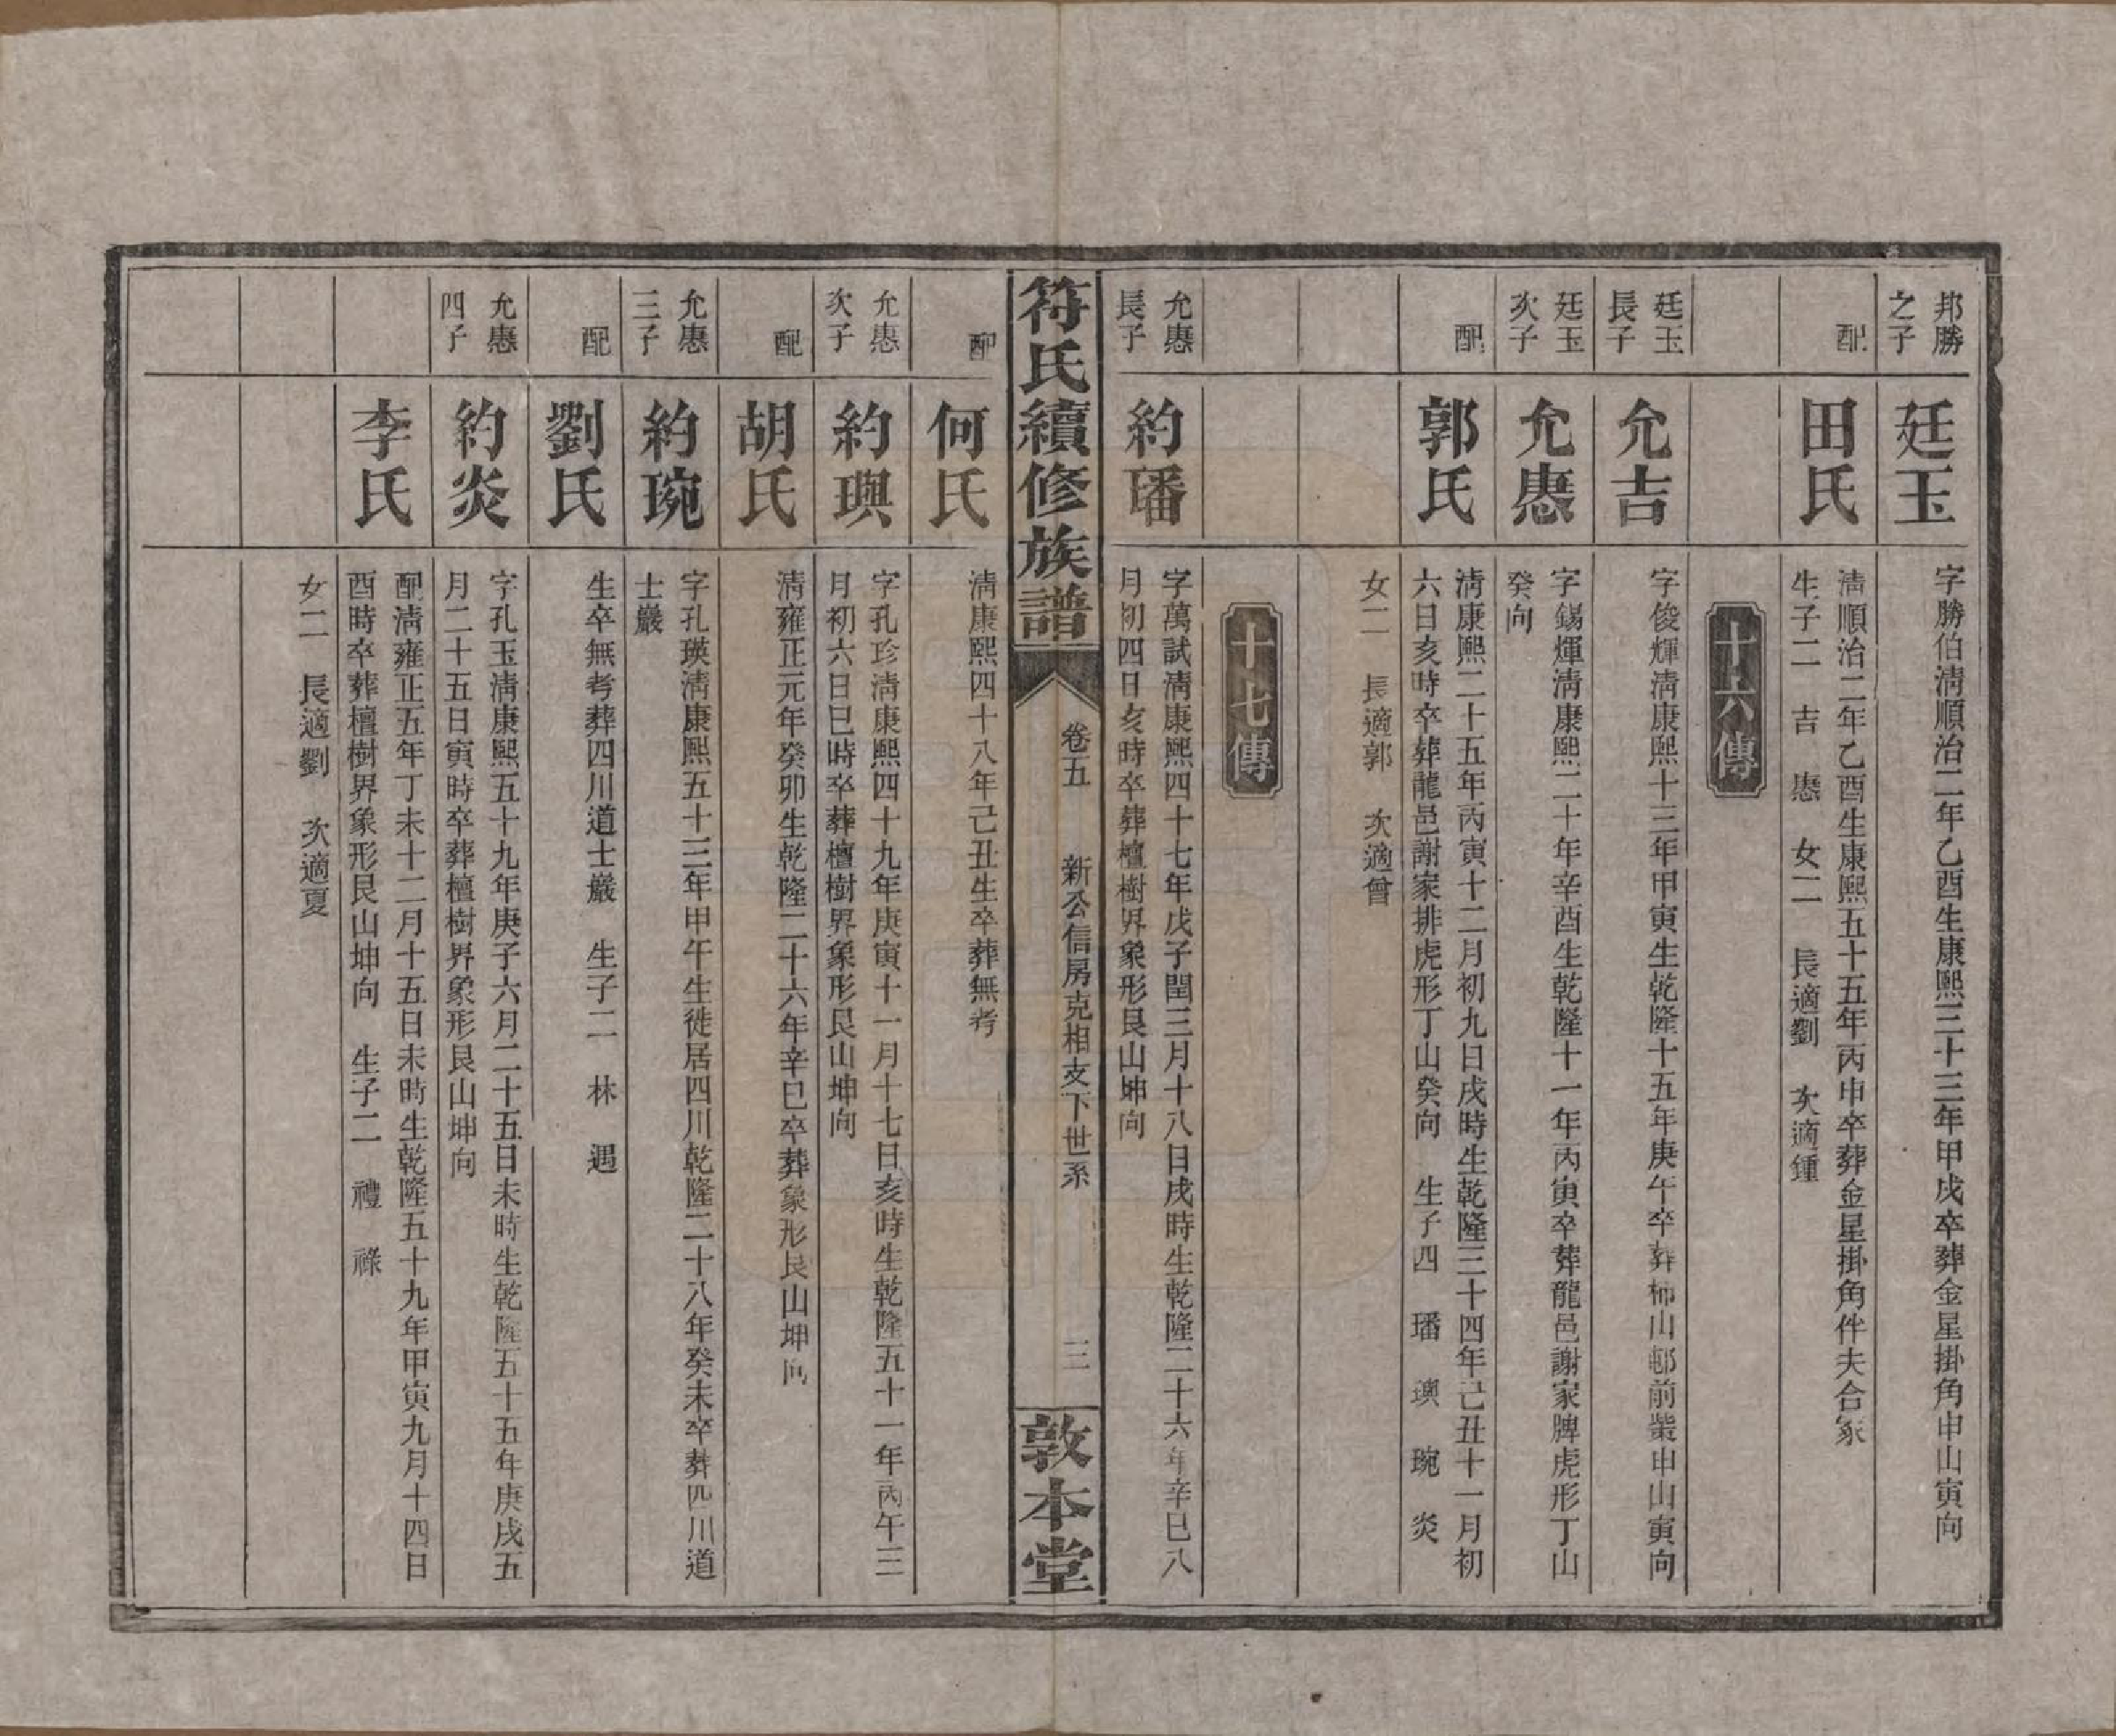 邦勝
之子
廷玉
字勝伯淸順治二年乙酉生康熙三十三年甲戌卒葬金星掛角申山寅向
配
田氏
淸順治二年乙酉生康熙五十五年丙申卒葬金星掛角伴夫合冢
生子二 吉 惠 女二 長適劉 次適鍾
十六傳
廷玉
長子
允吉
字俊輝淸康熙十三年甲寅生乾隆十五年庚午卒葬柿山邨前棠申山寅向
廷玉
次子
允惠
字錫煇淸康熙二十年辛酉生乾隆十一年丙寅卒葬龍邑謝家牌虎形丁山
癸向
配
郭氏
淸康熙二十五年丙寅十二月初九日戌時生乾隆三十四年己丑十一月初
六日亥時卒葬龍邑謝家排虎形丁山癸向 生子四 璠 璵 琬 炎
女二 長適郭 次適曾
十七傳
允惠
長子
約璠
字萬試淸康熙四十七年戊子閏三月十八日戌時生乾隆二十六年辛巳八
月初四日亥時卒葬檀樹界象形艮山坤向
符氏續修族譜
卷五 新公信房克相支下世系
三
敦本堂
配
何氏
淸康熙四十八年己丑生卒葬無考
允惠
次子
約璵
字孔珍淸康熙四十九年庚寅十一月十七日亥時生乾隆五十一年丙午三
月初六日巳時卒葬檀樹界象形艮山坤向
配
胡氏
淸雍正元年癸卯生乾隆二十六年辛巳卒葬象形艮山坤向
允惠
三子
約琬
字孔瑛淸康熙五十三年甲午生徙居四川乾隆二十八年癸未卒葬四川道
士巖
配
劉氏
生卒無考葬四川道士巖 生子二 林 遇
允惠
四子
約炎
字孔玉淸康熙五十九年庚子六月二十五日未時生乾隆五十五年庚戌五
月二十五日寅時卒葬檀樹界象形艮山坤向
李氏
配淸雍正五年丁未十二月十五日未時生乾隆五十九年甲寅九月十四日
酉時卒葬檀樹界象形艮山坤向 生子二 禮 祿
女二 長適劉 次適夏